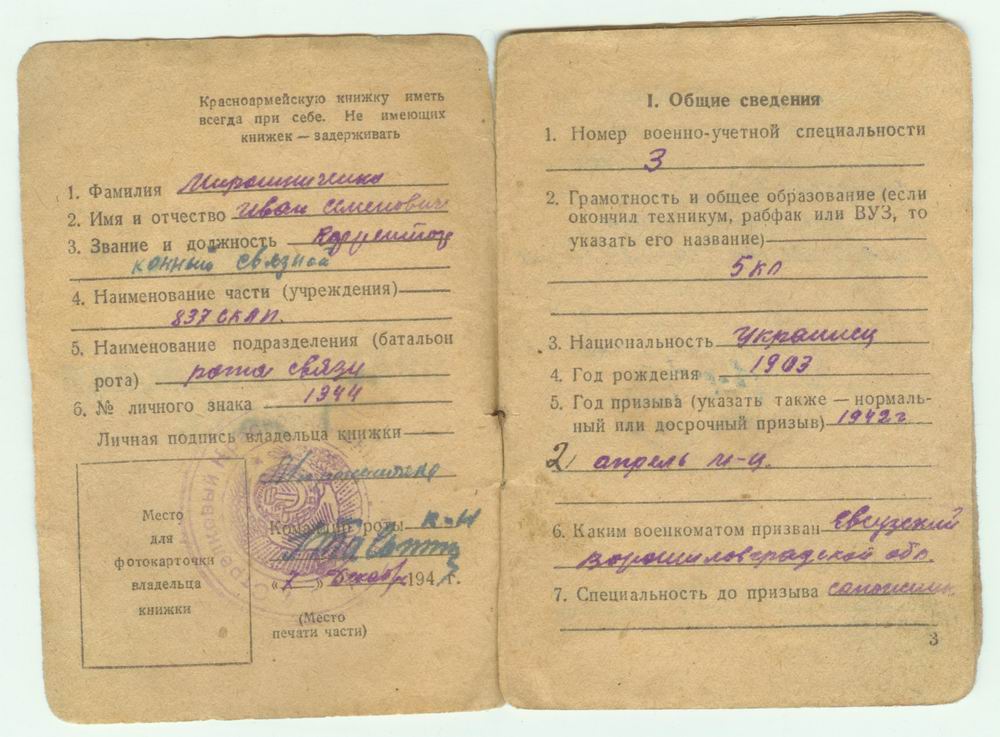 Красноармейскую книжку иметь
всегда при себе. Не имеющих
книжек — задерживать
1. Фамилия Мирошниченко
2. Имя и отчество Иван Семенович
3. Звание и должность
конный связной
4. Наименование части (учреждения)
837 СКАП.
5. Наименование подразделения (батальон
рота) рота связи
6. № личного знака 1344
Личная подпись владельца книжки
Место
для
фотокарточки
владельца
книжки
Командир роты к-н
«7» декабря 194 г.
(Место
печати части)
I. Общие сведения
1. Номер военно-учетной специальности
3
2. Грамотность и общее образование (если
окончил техникум, рабфак или ВУЗ, то
указать его название)
5 кл
3. Национальность Украинец
4. Год рождения 1903
5. Год призыва (указать также — нормаль-
ный или досрочный призыв) 1942 г
2 апрель м-ц.
6. Каким военкоматом призван Евсузский
Ворошиловградской обл.
7. Специальность до призыва
3